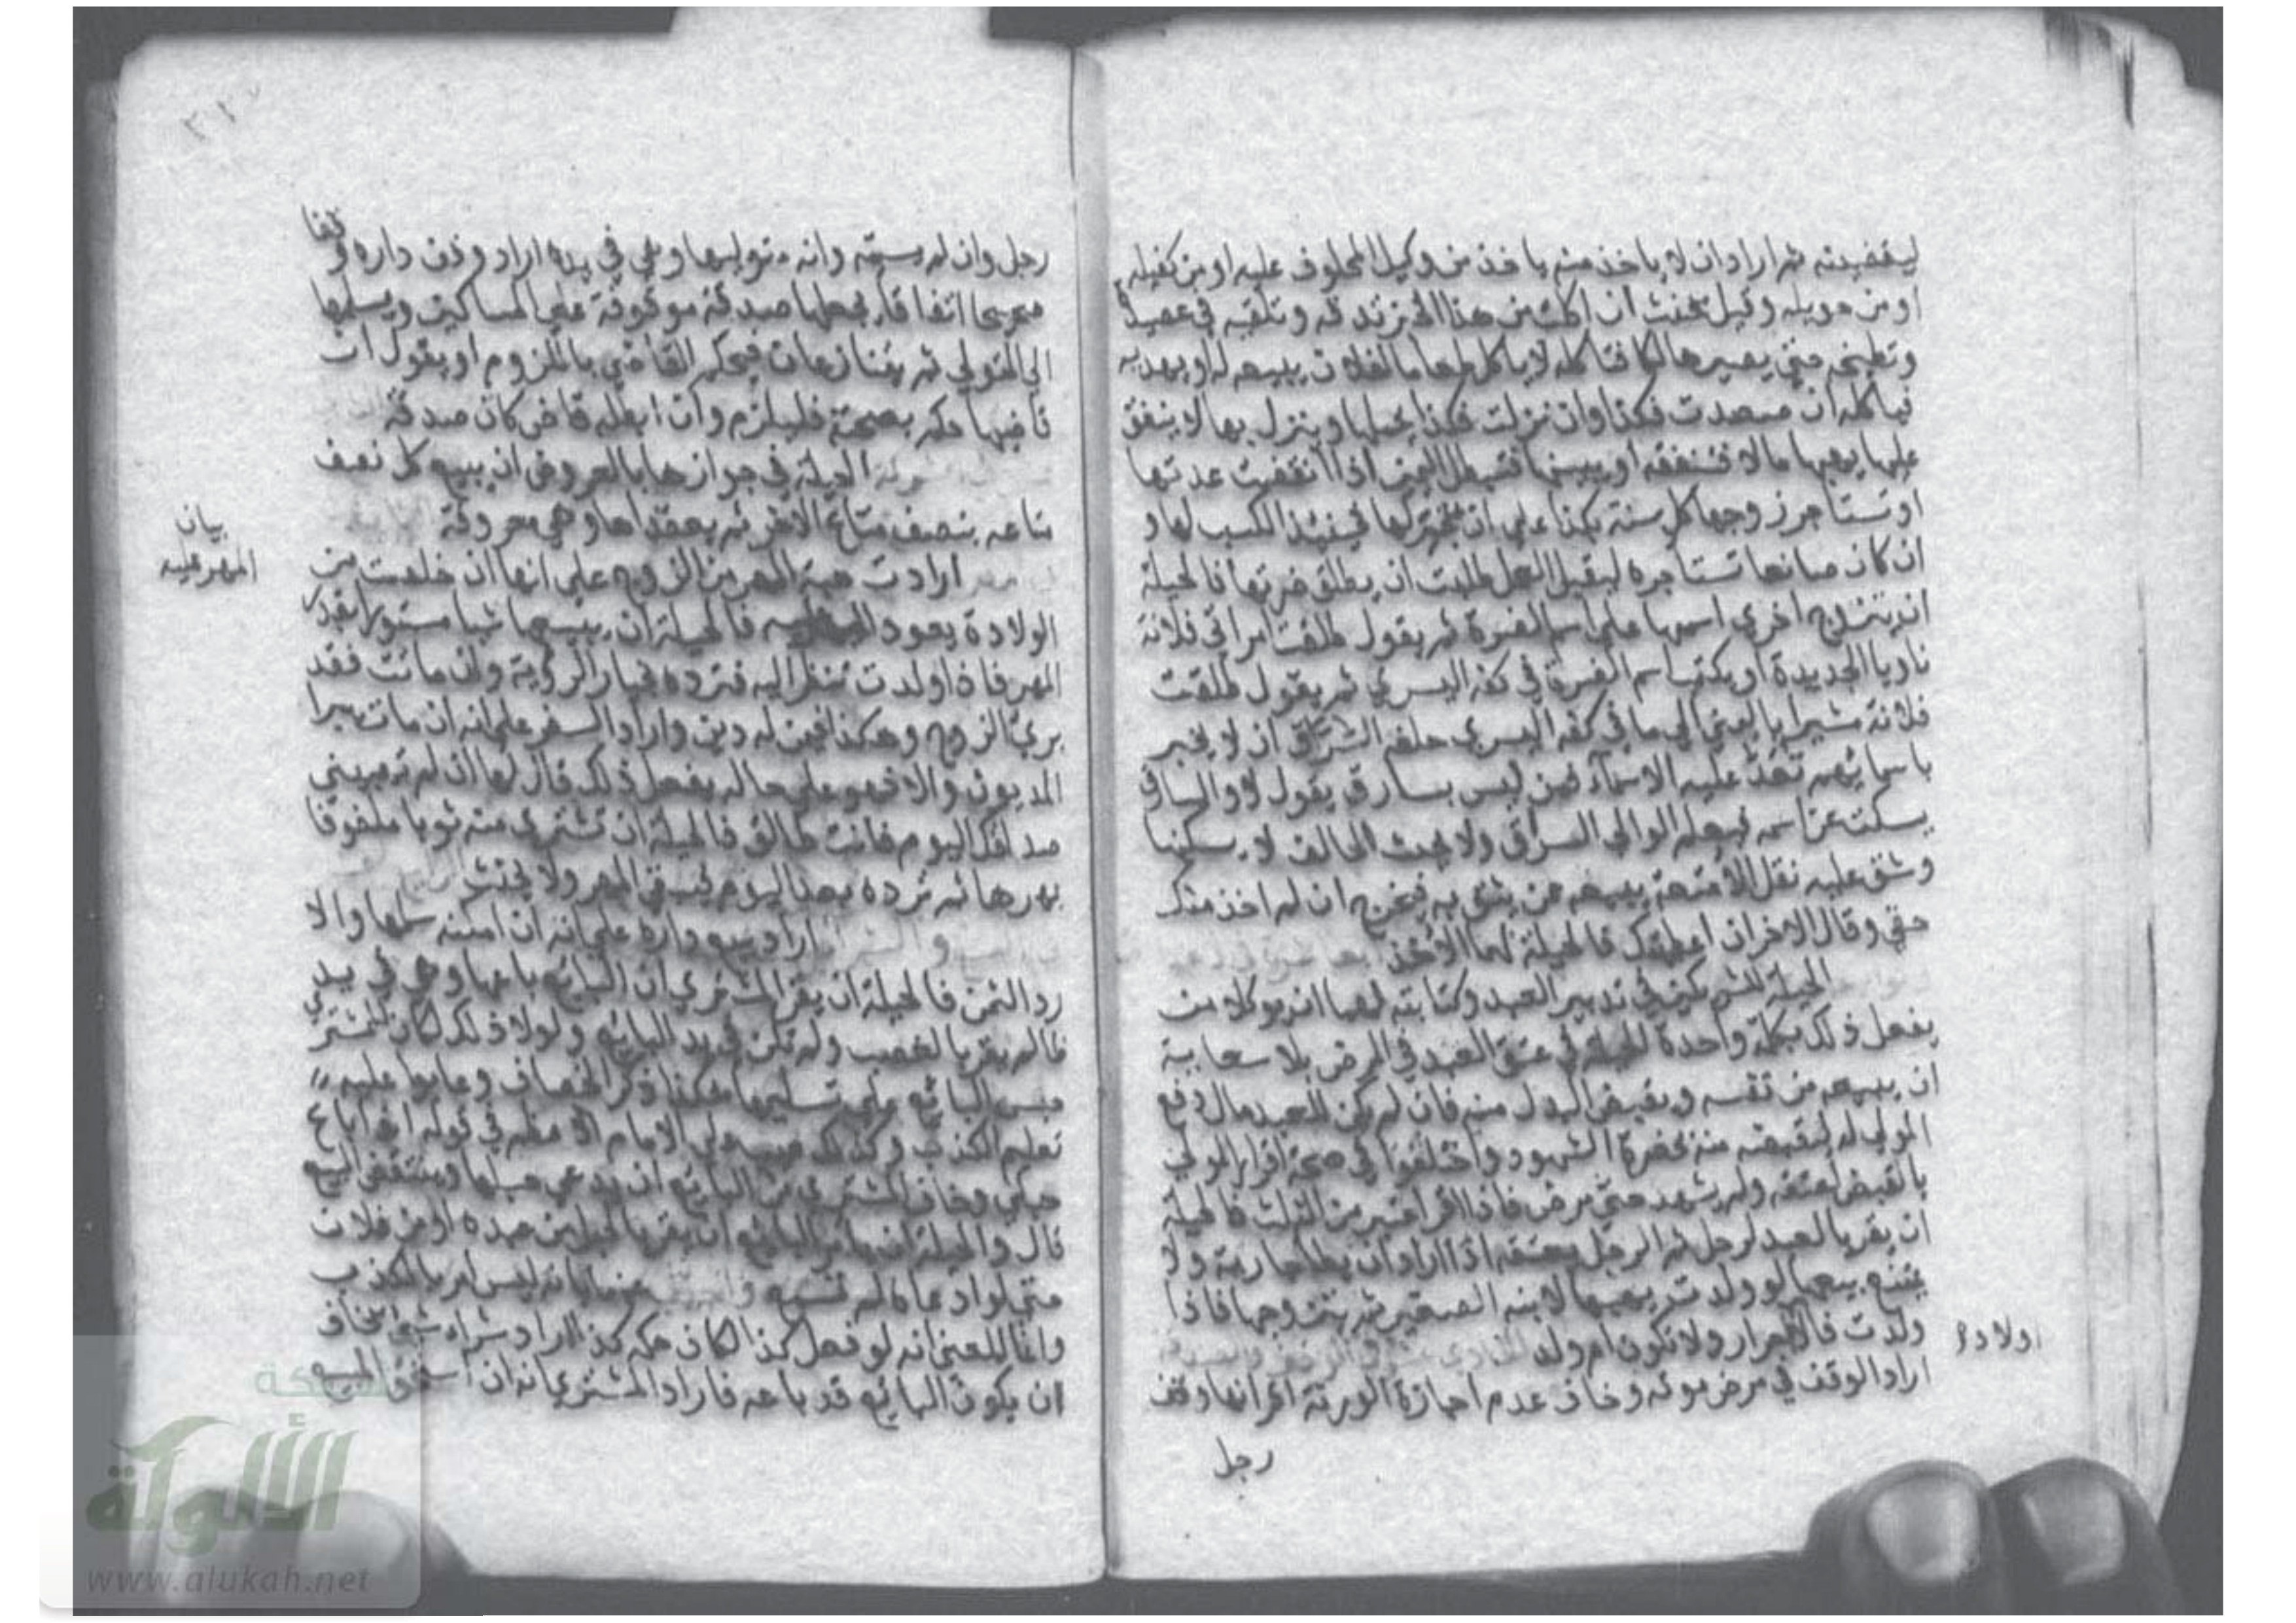 ليقضينه ثم اراد ان لا ياخذ منه ياخذ من وكيل المحلوف عليه او من كفيله
او من حويله وقيل يحنث ان اكلت من هذا الخبز تدقه وتلقيه في عصيدة
وتطبخ حتى يصير هالكا فتاكله لا ياكل طعاما لفلان يبيعه له او يهديه
فياكله ان صعدت فكذا وان نزلت فكذا يحملها وينزل بها لا ينفق
عليها يهبها مالا فتنفقه او يبينها فتبطل اليمين اذا انقضت عدتها
او تستاجر زوجها كل سنة بكذا على ان يتجر لها فحينئذ الكسب لها و
ان كان صانعا تستاجره ليقبل العمل طلبت ان يطلق ضرتها فالحيلة
ان يتزوج اخرى اسمها على اسم الضرة ثم يقول طلقت امراتي فلانة
ناويا الجديدة او يكتب اسم الضرة في كفه اليسرى ثم يقول طلقت
فلانة مشيرا باليمنى الى ما في كفه اليسرى حلفه السراق ان لا يخبر
باسمائهم تعد عليه الاسماء فمن ليس بسارق يقول لا والسارق
يسكت عن اسمه فيعلم الوالي السراق ولا يحنث الحالف لا يسكنها
وشق عليه نقل الامتعة يبيعه ممن يثق به فيخرج ان لم اخذ منك
حقي وقال الاخر ان اعطيتك فالحيلة لهما الاخذ
الحيلة للشريكين في تدبير العبد وكتابته لهما ان يوكلا من
يفعل ذلك بكلمة واحدة الحيلة في عتق العبد في المرض بلا سعاية
ان يبيعه من نفسه ويقبض البدل منه فان لم يكن للعبد مال دفع
المولى له ليقبضه منه بحضرة الشهود واختلفوا في صحة اقرار المولى
بالقبض اعتقه ولم يشهد حتى مرض فاذا اقر اعتبر من الثلث فالحيلة
ان يقر بالعبد لرجل ثم الرجل يعتقه اذا اراد ان يطا جارية ولا
يمتنع بيعها لو ولدت يهبها لابنه الصغير ثم يتزوجها فاذا
ولدت فالاحرار ولا تكون ام ولد
اولاده
اراد الوقف في مرض موته وخاف عدم اجازة الورثة اقر انها وقف
رجل
رجل وان لم يسمه وانه متوليها وهي في يده اراد وقف داره وقفا
صحيحا اتفاقا يجعلها صدقة موقوفة على المساكين ويسلمها
الى المتولي ثم يتنازعان فيحكم القاضي باللزوم او يقول ان
قاضيا حكم بصحته فليلزم وان ابطله قاض كان صدقة
الحيلة في جوازها بالعروض ان يبيع كل نصف
متاعه بنصف متاع الاخر ثم يعقداها وهي معروفة
ارادت هبة المهر من الزوج على انها ان خلصت من
بيان
المهر عليه
الولادة يعود المهر عليه فالحيلة ان يبيعها شيا مستورا بقدر
المهر فاذا ولدت تنظر اليه فترده بخيار الرؤية وان ماتت فقد
برئ الزوج وهكذا فيمن له دين واراد السفر على انه ان مات يبرا
المديون والا فهو على حاله يفعل ذلك قال لها ان لم تهبيني
صداقك اليوم فانت طالق فالحيلة ان تشتري منه ثوبا ملفوفا
بمهرها ثم ترده بعد اليوم فيبقى المهر ولا يحنث
اراد بيع داره على انه ان امكنه سلمها والا
رد الثمن فالحيلة ان يقر المشتري ان البائع باعها وهي في يد
ظالم يقر بالغصب ولم تكن في يد البائع ولولا ذلك لكان للمشتري
حبس البائع على تسليمها هكذا ذكر الخصاف وعابوا عليه
تعليم الكذب وكذلك عيب على الامام الاعظم في قوله اذا باع
حبلى وخاف المشتري من البائع ان يدعي حبلها وينتقض البيع
قال والحيلة ان يامر البائع ان يقر بالحبل من عبده او من فلان
حتى لو ادعاه لم تسمع عنهما بانه ليس امر بالكذب
وانما المعنى انه لو فعل كذا لكان حكمه كذا اراد شراء شئ يخاف
ان يكون البائع قد باعه فاراد المشتري انه ان استحق المبيع
الألوكة
www.alukah.net